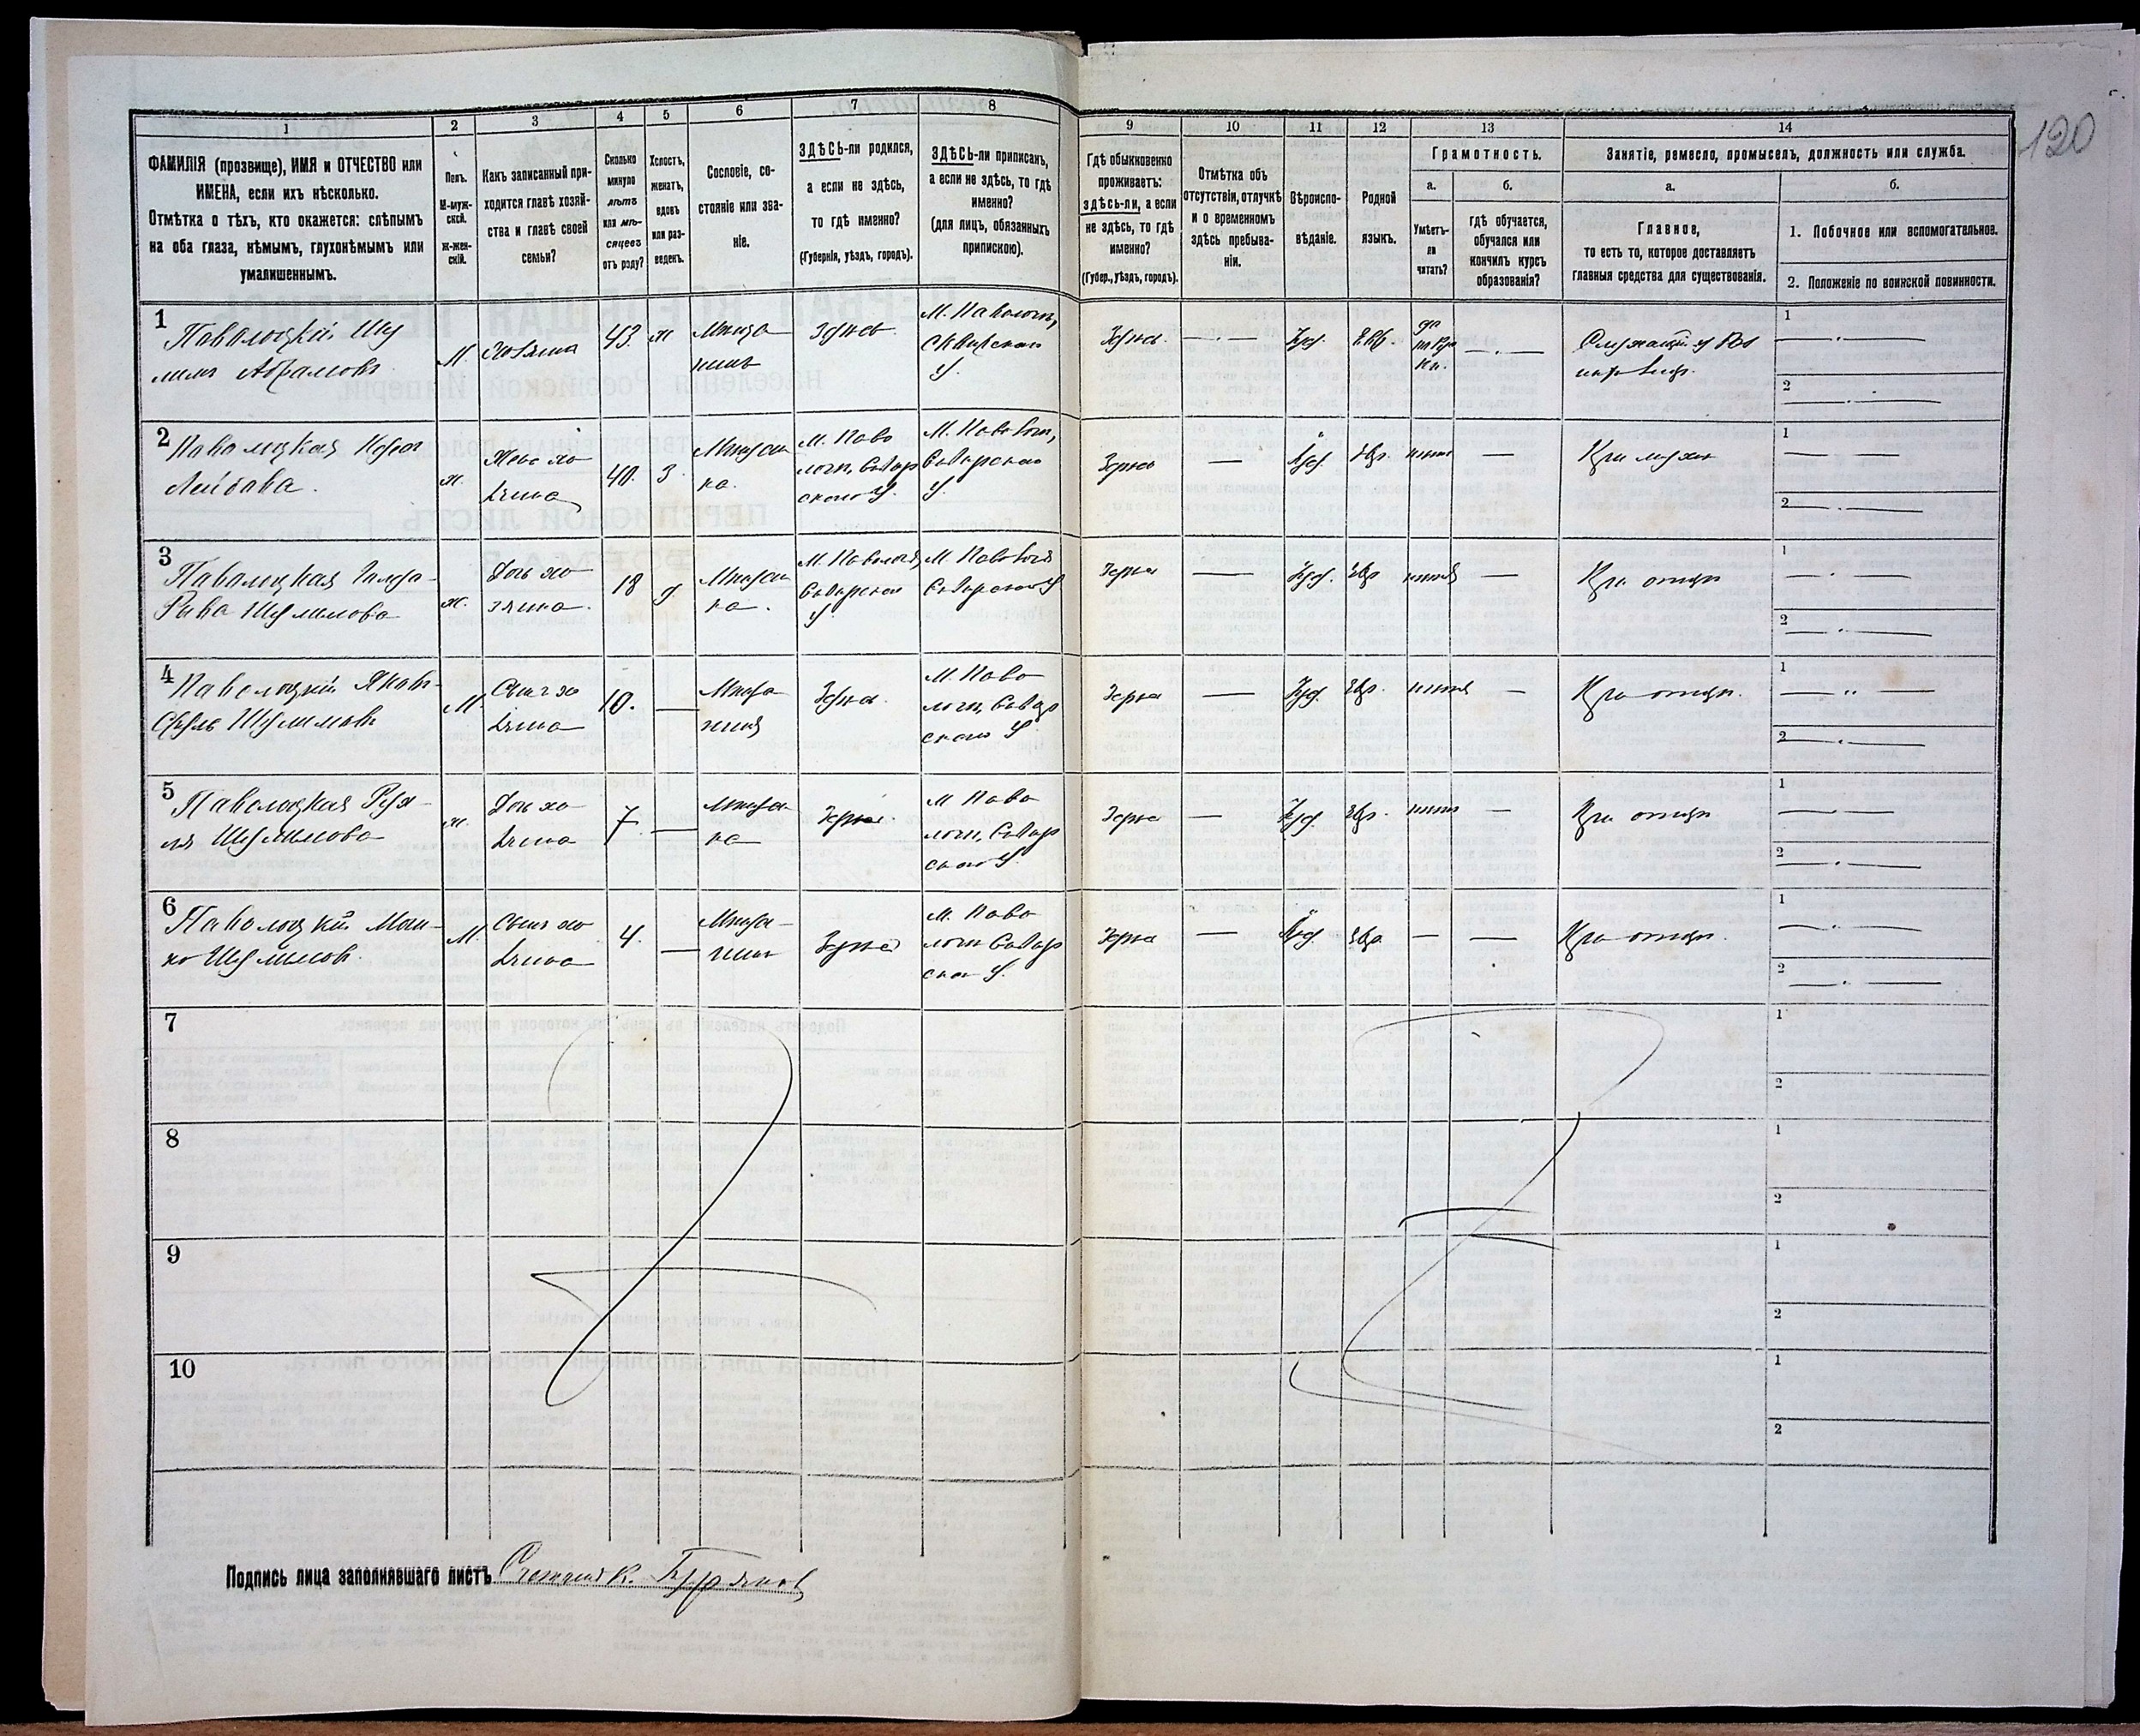 120
1
2
3
4
5
6
7
8
9
10
11
12
13
14
ФАМИЛІЯ (прозвище), ИМЯ и ОТЧЕСТВО или
ИМЕНА, если ихъ нѣсколько.
Отмѣтка о тѣхъ, кто окажется: слѣпымъ
на оба глаза, нѣмымъ, глухонѣмымъ или
умалишеннымъ.
Полъ.
М-муж-
ской.
Ж-жен-
скій.
Какъ записанный при-
ходится главѣ хозяй-
ства и главѣ своей
семьи?
Сколько
минуло
лѣтъ
или мѣ-
сяцевъ
отъ роду?
Холостъ,
женатъ,
вдовъ
или раз-
веденъ.
Сословіе, со-
стояніе или зва-
ніе.
ЗДѢСЬ-ли родился,
а если не здѣсь,
то гдѣ именно?
(Губернія, уѣздъ, городъ).
ЗДѢСЬ-ли приписанъ,
а если не здѣсь, то гдѣ
именно?
(для лицъ, обязанныхъ
припискою).
Гдѣ обыкновенно
проживаетъ:
здѣсь-ли, а если
не здѣсь, то гдѣ
именно?
(Губер., уѣздъ, городъ).
Отмѣтка объ
отсутствіи, отлучкѣ
и о временномъ
здѣсь пребыва-
ніи.
Вѣроиспо-
вѣданіе.
Родной
языкъ.
Грамотность.
а.
Умѣетъ-
ли
читать?
б.
гдѣ обучается,
обучался или
кончилъ курсъ
образованія?
Занятіе, ремесло, промыселъ, должность или служба.
а.
Главное,
то есть то, которое доставляетъ
главныя средства для существованія.
б.
1. Побочное или вспомогательное.
2. Положеніе по воинской повинности.
1
Паволоцкій Шу
лимъ Абрамовъ
М.
Хозяинъ
43.
ж
Мѣща
нинъ
Здѣсь
М. Паволочь,
Сквирскаго
У.
Здѣсь
Іуд.
Евр.
да
Служащій у
1
2
2
Паволоцкая
Лейбова.
ж.
Жена хо
зяина
40.
З.
Мѣщан
ка.
М. Паво
лочи, Сквир
скаго У.
М. Паволочи,
Сквирскаго
У.
Здѣсь
Іуд.
Евр.
нѣтъ
При мужѣ
1
2
3
Паволоцкая
Рива Шулимова
ж.
Дочь хо
зяина.
18
д.
Мѣщан
ка.
М. Паволочи
Сквирскаго
У.
М. Паволочи
Сквирскаго У
Здѣсь
Іуд.
Евр
нѣтъ
При отцѣ
1
2
4
Паволоцкій Яковъ-
Сруль Шулимовъ
М.
Сынъ хо
зяина
10.
Мѣща
нинъ
Здѣсь.
М. Паво
лочи, Сквир
скаго У
Здѣсь
Іуд.
Евр.
нѣтъ
При отцѣ.
1
2
5
Паволоцкая Рух-
ля Шулимова
ж.
Дочь хо
зяина
7
Мѣщан
ка
Здѣсь.
М Паво
лочи, Сквир
скаго У.
Здѣсь
Іуд.
Евр.
нѣтъ
При отцѣ
1
2
6
Паволоцкій Мош-
ко Шулимовъ.
М.
Сынъ хо
зяина
4.
Мѣща-
нинъ
Здѣсь
М. Паво
лочи Сквир
скаго У.
Здѣсь
Іуд.
Евр
При отцѣ.
1
2
7
1
2
8
1
2
9
1
2
10
1
2
Подпись лица заполнявшаго листъ Счетчикъ